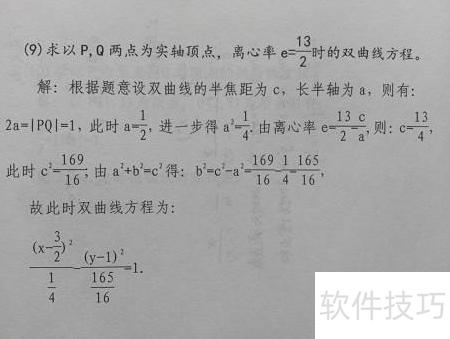 (9)求以P,Q两点为实轴顶点，离心率e=13/2时的双曲线方程。
解：根据题意设双曲线的半焦距为c，长半轴为a，则有：
2a=|PQ|=1，此时a=1/2，进一步得a²=1/4.由离心率e=13/2=c/a,则：c=13/4，
此时c²=169/16；由a²+b²=c²得：b²=c²-a²=169/16-1/4=165/16，
故此时双曲线方程为：
(x-3/2)²/(1/4)-(y-1)²/(165/16)=1.
软件技巧